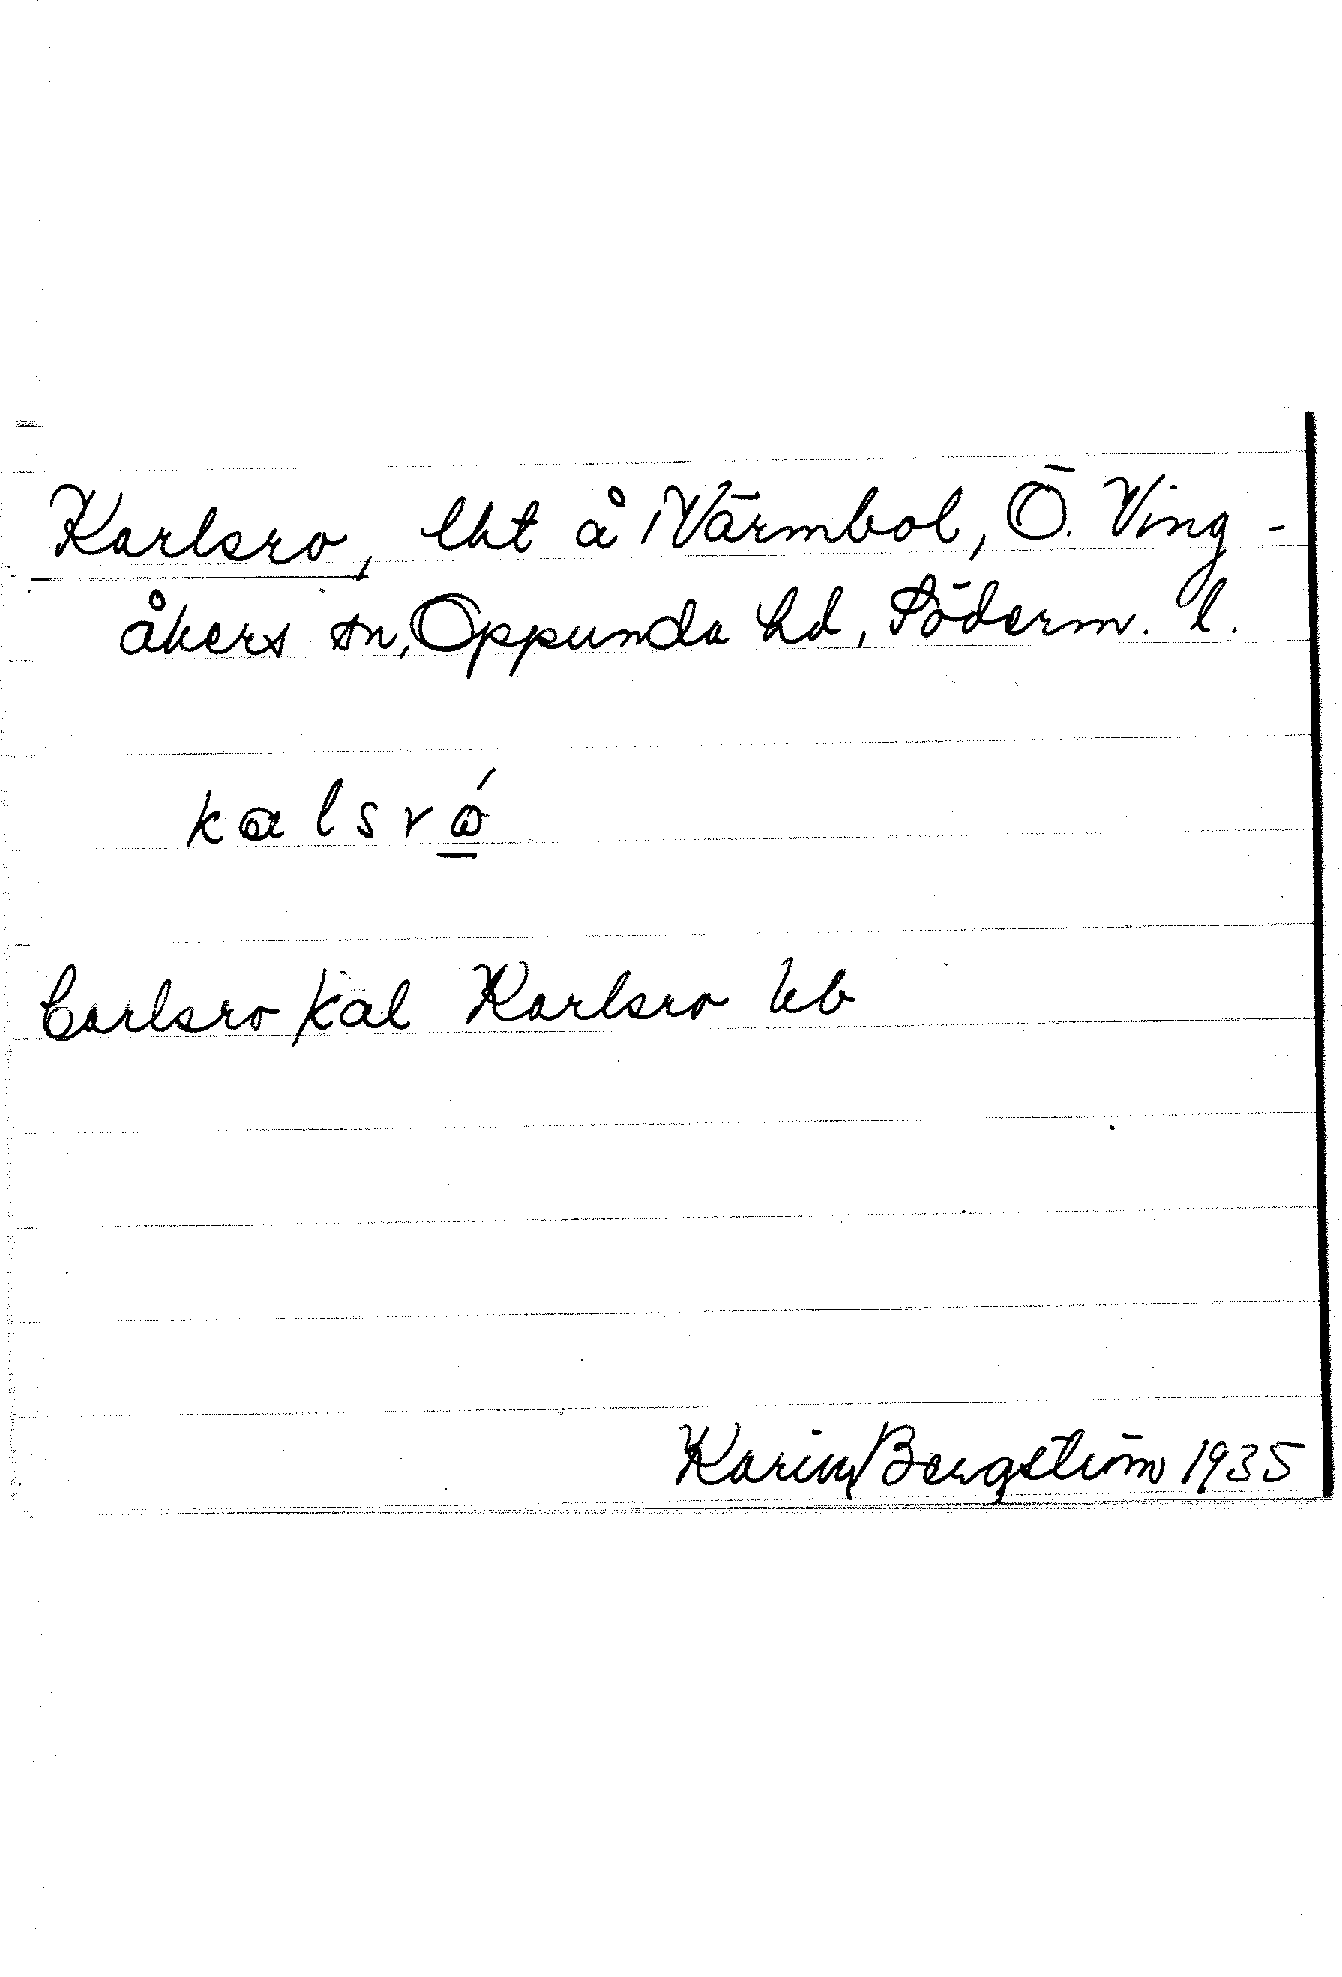 Karlsro, lht å Värmbol, Ö. Ving-
åkers sn, Oppunda hd, Söderm. l.
kalsró
Carlsro kal Karlsro kb
Karin Bergström 1935